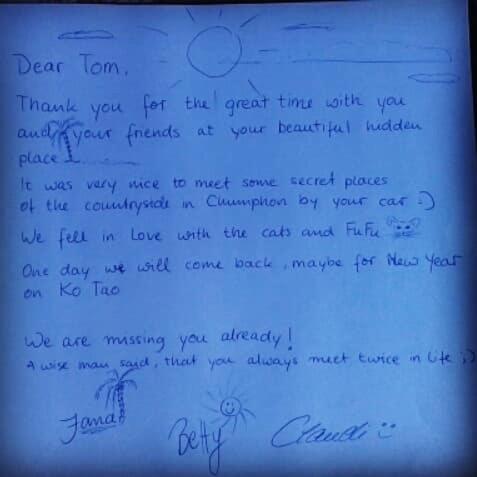 Dear Tom,
Thank you for the great time with you
and your friends at your beautiful hidden
place
It was very nice to meet some secret places
of the countryside in Chumphon by your car :)
We fell in Love with the cats and FuFu
One day we will come back, maybe for New Year
on Ko Tao
We are missing you already!
A wise man said, that you always meet twice in life ;)
Jana
Betty
Claudi :)